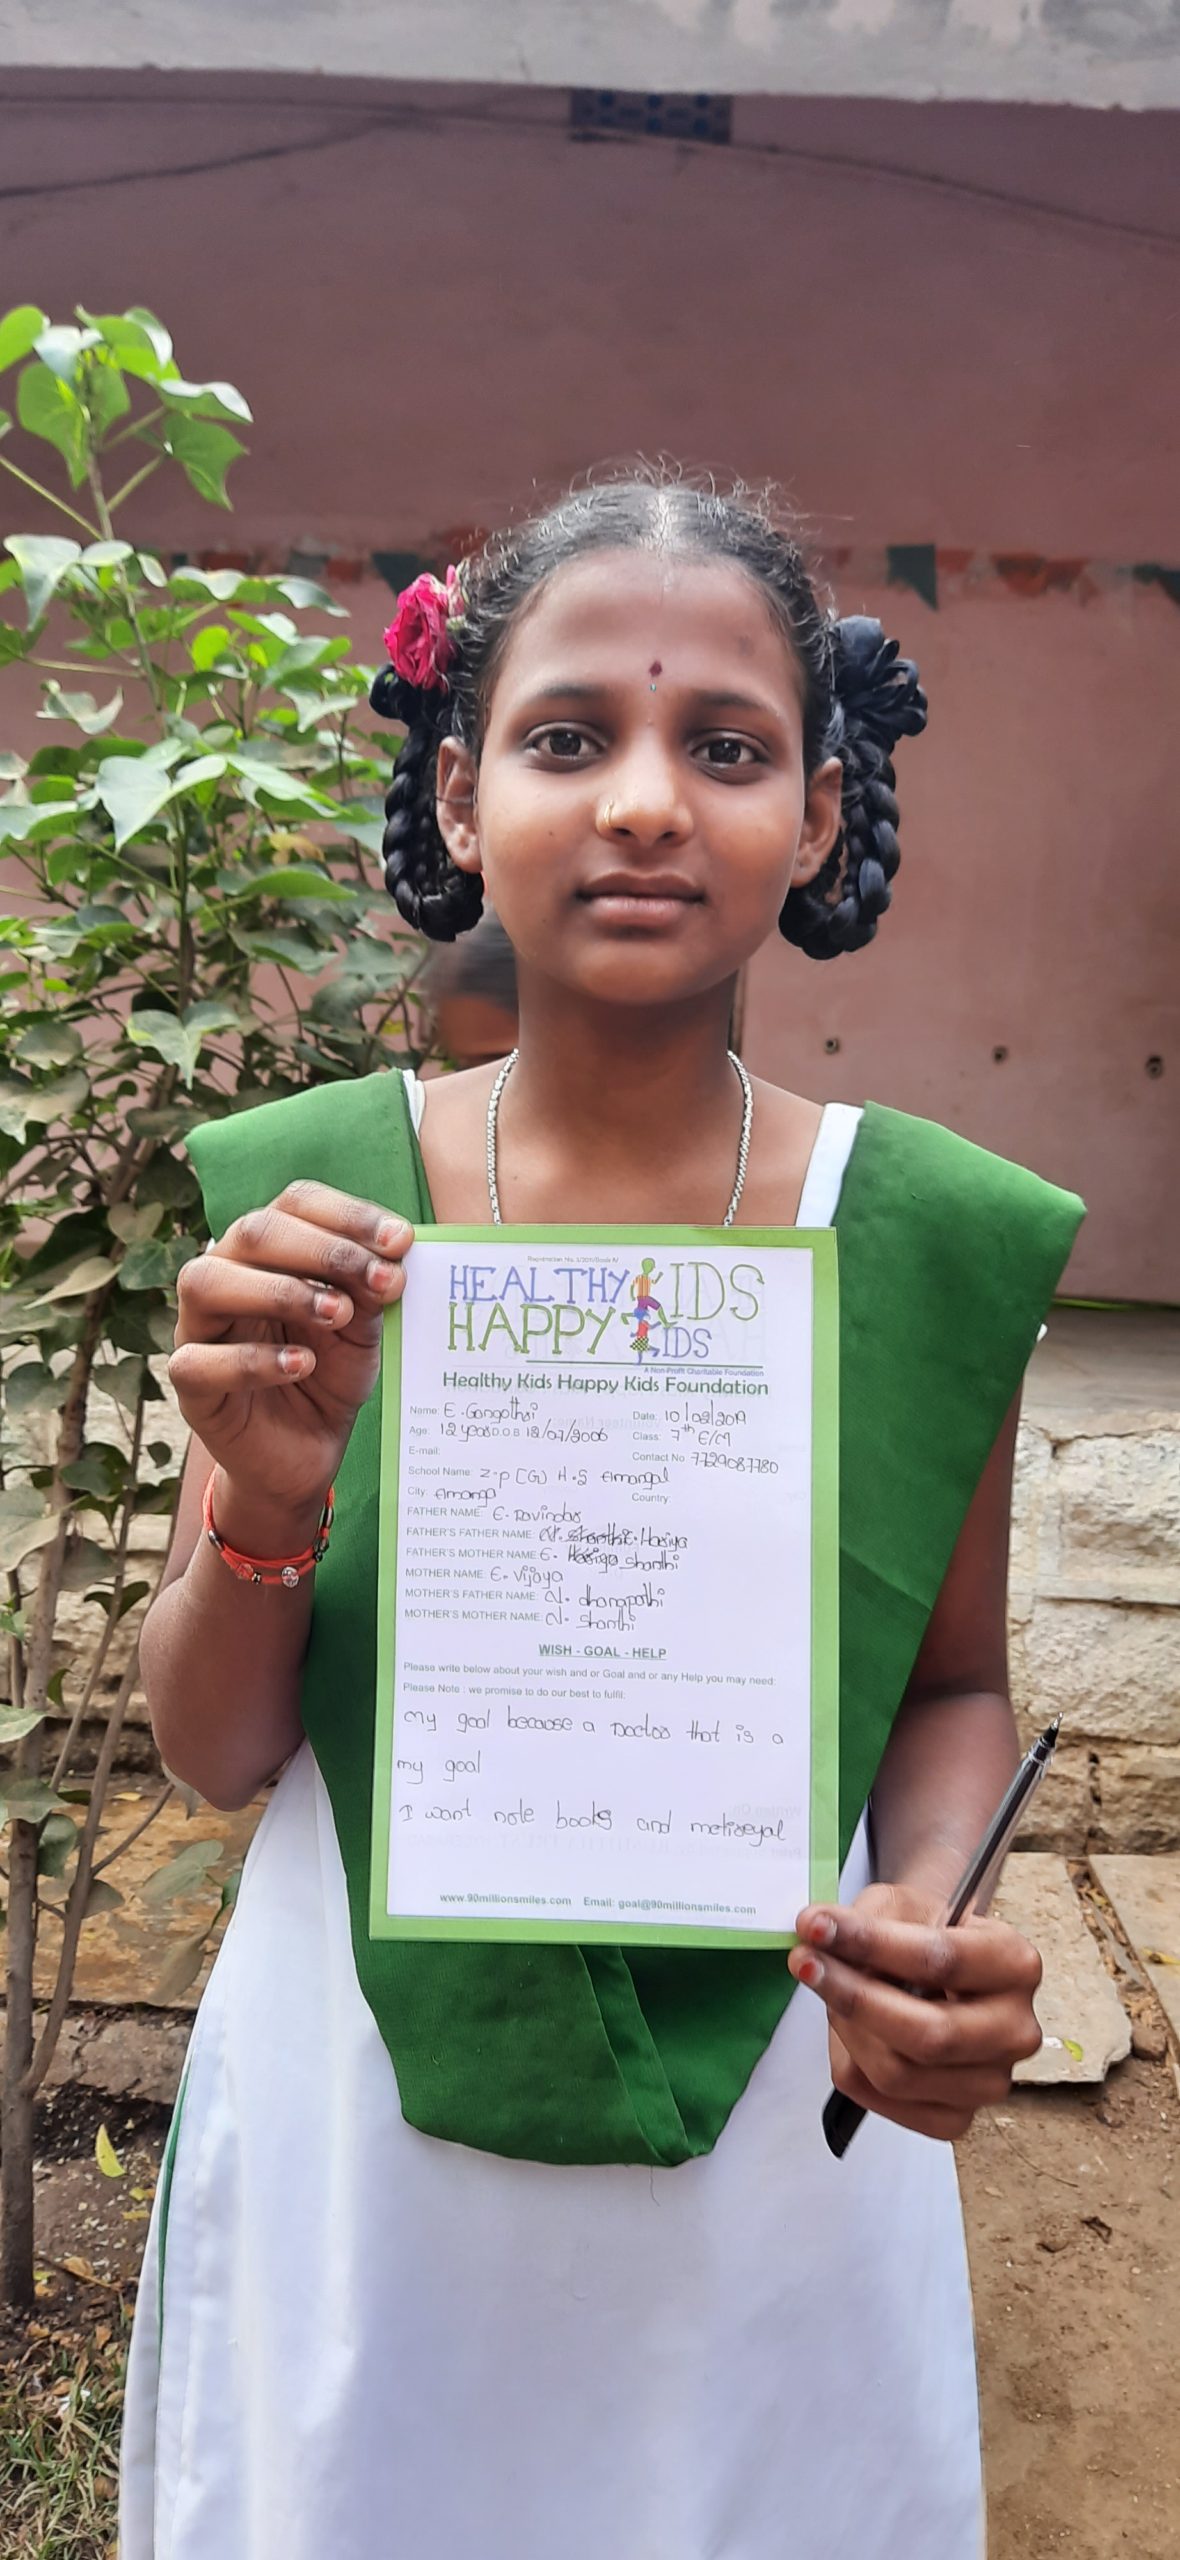 Registration No. 1/2011/Book IV
HEALTHY KIDS
HAPPY KIDS
A Non-Profit Charitable Foundation
Healthy Kids Happy Kids Foundation
Name: E. Gangothri Date: 10/02/2019
Age: 12 years D.O.B 12/07/2006 Class: 7th E/M
E-mail: Contact No 7729087780
School Name: Z.P (G) H.S Amangal
City: Amanga Country:
FATHER NAME: E. Ravindar
FATHER'S FATHER NAME: E. Hasiya
FATHER'S MOTHER NAME E. Shanthi
MOTHER NAME: E. Vijaya
MOTHER'S FATHER NAME: N. dhanapathi
MOTHER'S MOTHER NAME: N. Shanthi
WISH - GOAL - HELP
Please write below about your wish and or Goal and or any Help you may need:
Please Note : we promise to do our best to fulfil:
my goal because a Doctor that is a
my goal
I want note books and metireyal
www.90millionsmiles.com Email: goal@90millionsmiles.com